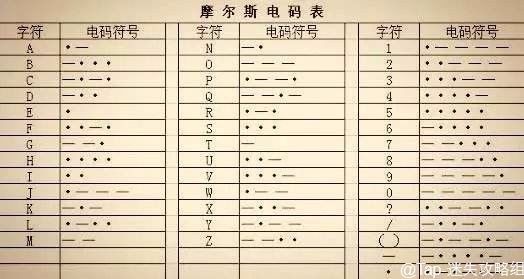 摩尔斯电码表
字符 电码符号 字符 电码符号 字符 电码符号
A •— N —• 1 •————
B —••• O ——— 2 ••———
C —•—• P •——• 3 •••——
D —•• Q ——•— 4 ••••—
E • R •—• 5 •••••
F ••—• S ••• 6 —••••
G ——• T — 7 ——•••
H •••• U ••— 8 ———••
I •• V •••— 9 ————•
J •——— W •—— 0 —————
K —•— X —••— ? ••——••
L •—•• Y —•—— / —••—•
M —— Z ——•• () —•——•—
—
•
@Tap 迷失攻略组